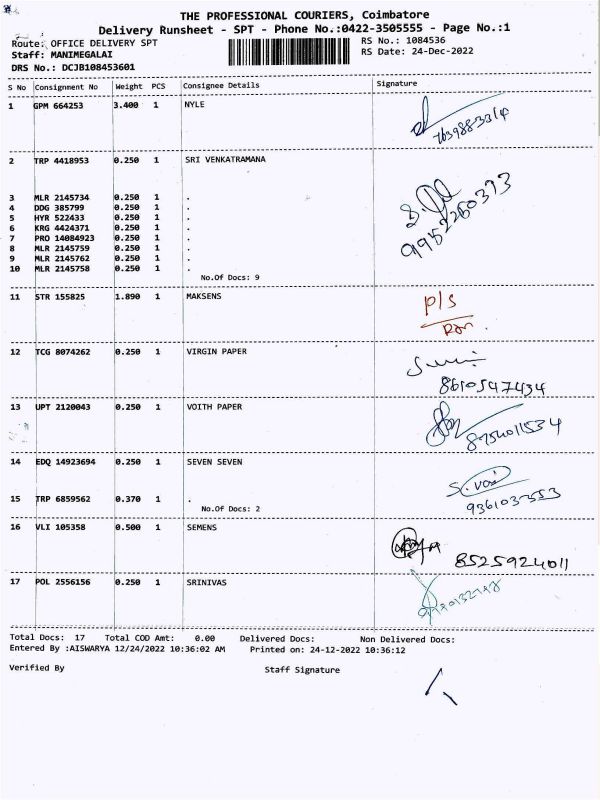 THE PROFESSIONAL COURIERS, Coimbatore
Delivery Runsheet - SPT - Phone No.:0422-3505555 - Page No.:1
Route: OFFICE DELIVERY SPT
RS No.: 1084536
Staff: MANIMEGALAI
RS Date: 24-Dec-2022
DRS No.: DCJB108453601
S No Consignment No Weight PCS Consignee Details Signature
1 GPM 664253 3.400 1 NYLE
7639883314
2 TRP 4418953 0.250 1 SRI VENKATRAMANA
3 MLR 2145734 0.250 1 .
4 DDG 385799 0.250 1 .
5 HYR 522433 0.250 1 .
6 KRG 4424371 0.250 1 .
7 PRO 14084923 0.250 1 .
8 MLR 2145759 0.250 1 .
9 MLR 2145762 0.250 1 .
10 MLR 2145758 0.250 1 .
9952260373
No.Of Docs: 9
11 STR 155825 1.890 1 MAKSENS
P/S
12 TCG 8074262 0.250 1 VIRGIN PAPER
8610547434
13 UPT 2120043 0.250 1 VOITH PAPER
8754011534
14 EDQ 14923694 0.250 1 SEVEN SEVEN
15 TRP 6859562 0.370 1 .
9361037553
No.Of Docs: 2
16 VLI 105358 0.500 1 SEMENS
8525924011
17 POL 2556156 0.250 1 SRINIVAS
Total Docs: 17 Total COD Amt: 0.00 Delivered Docs: Non Delivered Docs:
Entered By :AISWARYA 12/24/2022 10:36:02 AM Printed on: 24-12-2022 10:36:12
Verified By Staff Signature